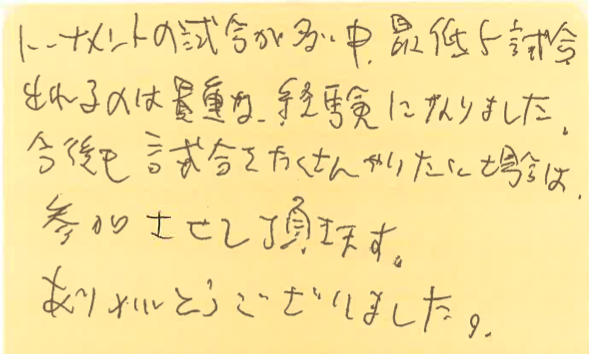 トーナメントの試合が多い中、最低5試合
出れるのは貴重な経験になりました。
今後も試合をたくさんやりたい場合は、
参加させて頂きます。
ありがとうございました。